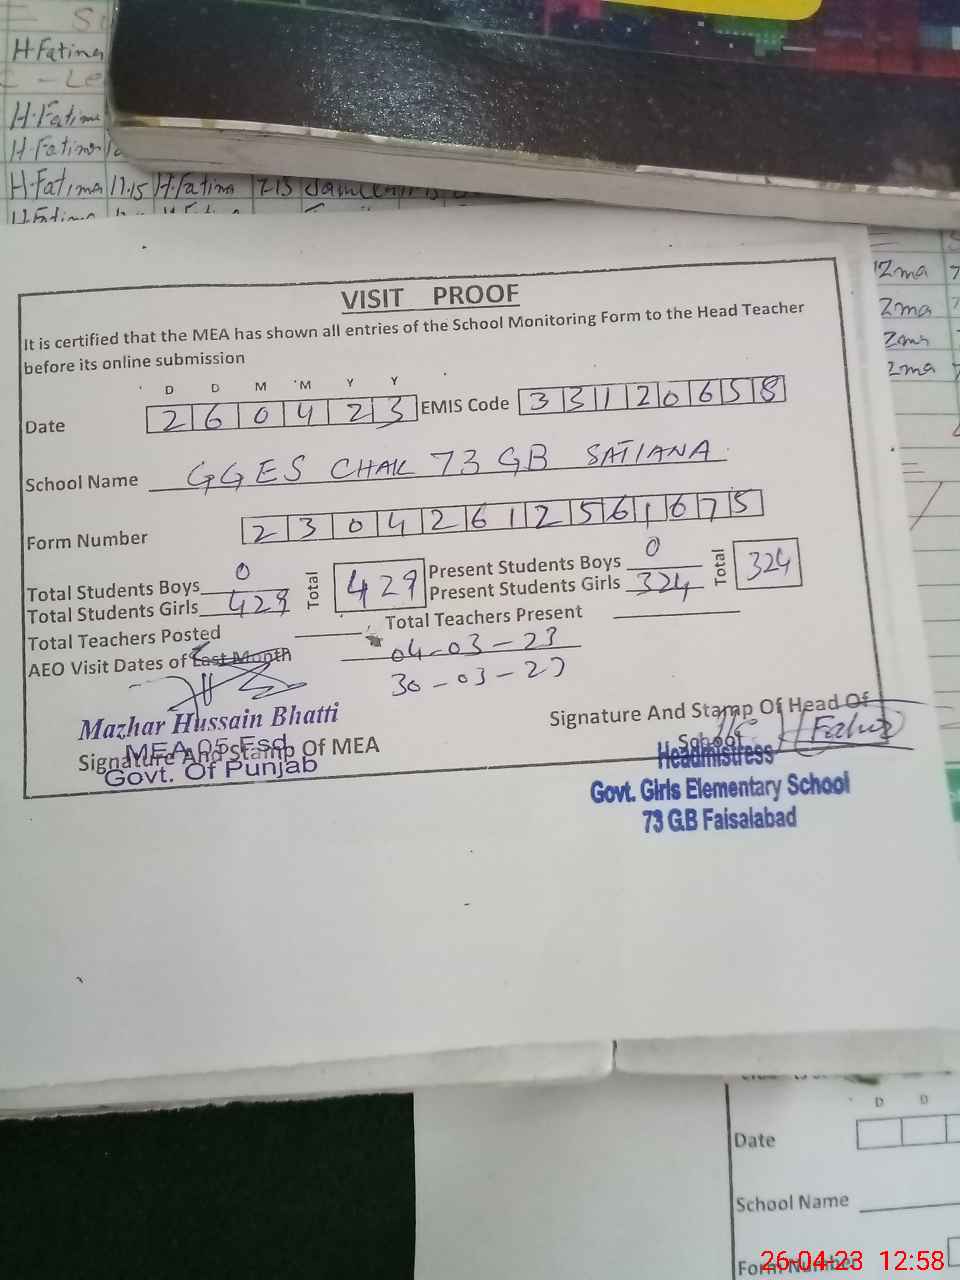 H.Fatima
H.Fatima
H.Fatima
H.Fatima 11.15 H.Fatima 7.15
VISIT PROOF
It is certified that the MEA has shown all entries of the School Monitoring Form to the Head Teacher
before its online submission
D D M M Y Y
Date 2 6 0 4 2 3 EMIS Code 3 3 1 2 0 6 5 8
School Name GGES CHAK 73 GB SATIANA
Form Number 2 3 0 4 2 6 1 2 5 6 1 0 7 5
Total Students Boys 0 Present Students Boys 0
Total Students Girls 429 Total 429 Present Students Girls 324 Total 324
Total Teachers Posted Total Teachers Present
AEO Visit Dates of Last Month 04-03-23
30-03-23
Mazhar Hussain Bhatti
MEA 05 Fsd
Signature And Stamp Of MEA
Govt. Of Punjab
Signature And Stamp Of Head Of
School
Headmistress
Govt. Girls Elementary School
73 G.B Faisalabad
D D
Date
School Name
Form Number
26-04-23 12:58